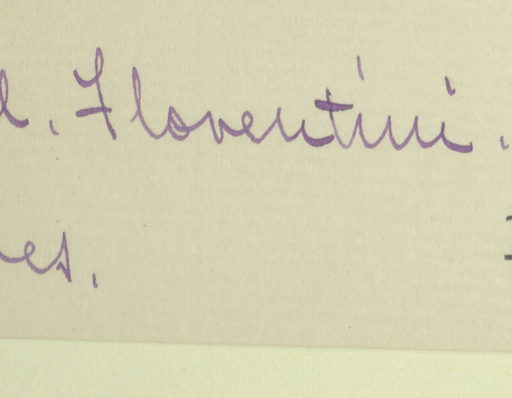 l. Florentini.
es.